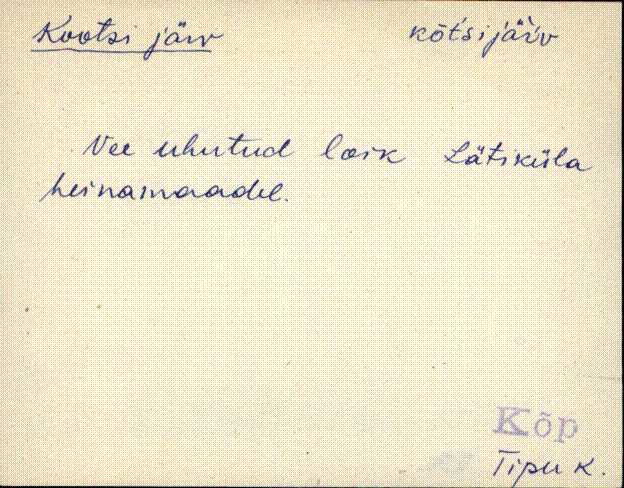 Kootsi järv kōt́sijäŕv
Vee uhutud loik Lätiküla
heinamaadel.
Kõp
Tipu k.